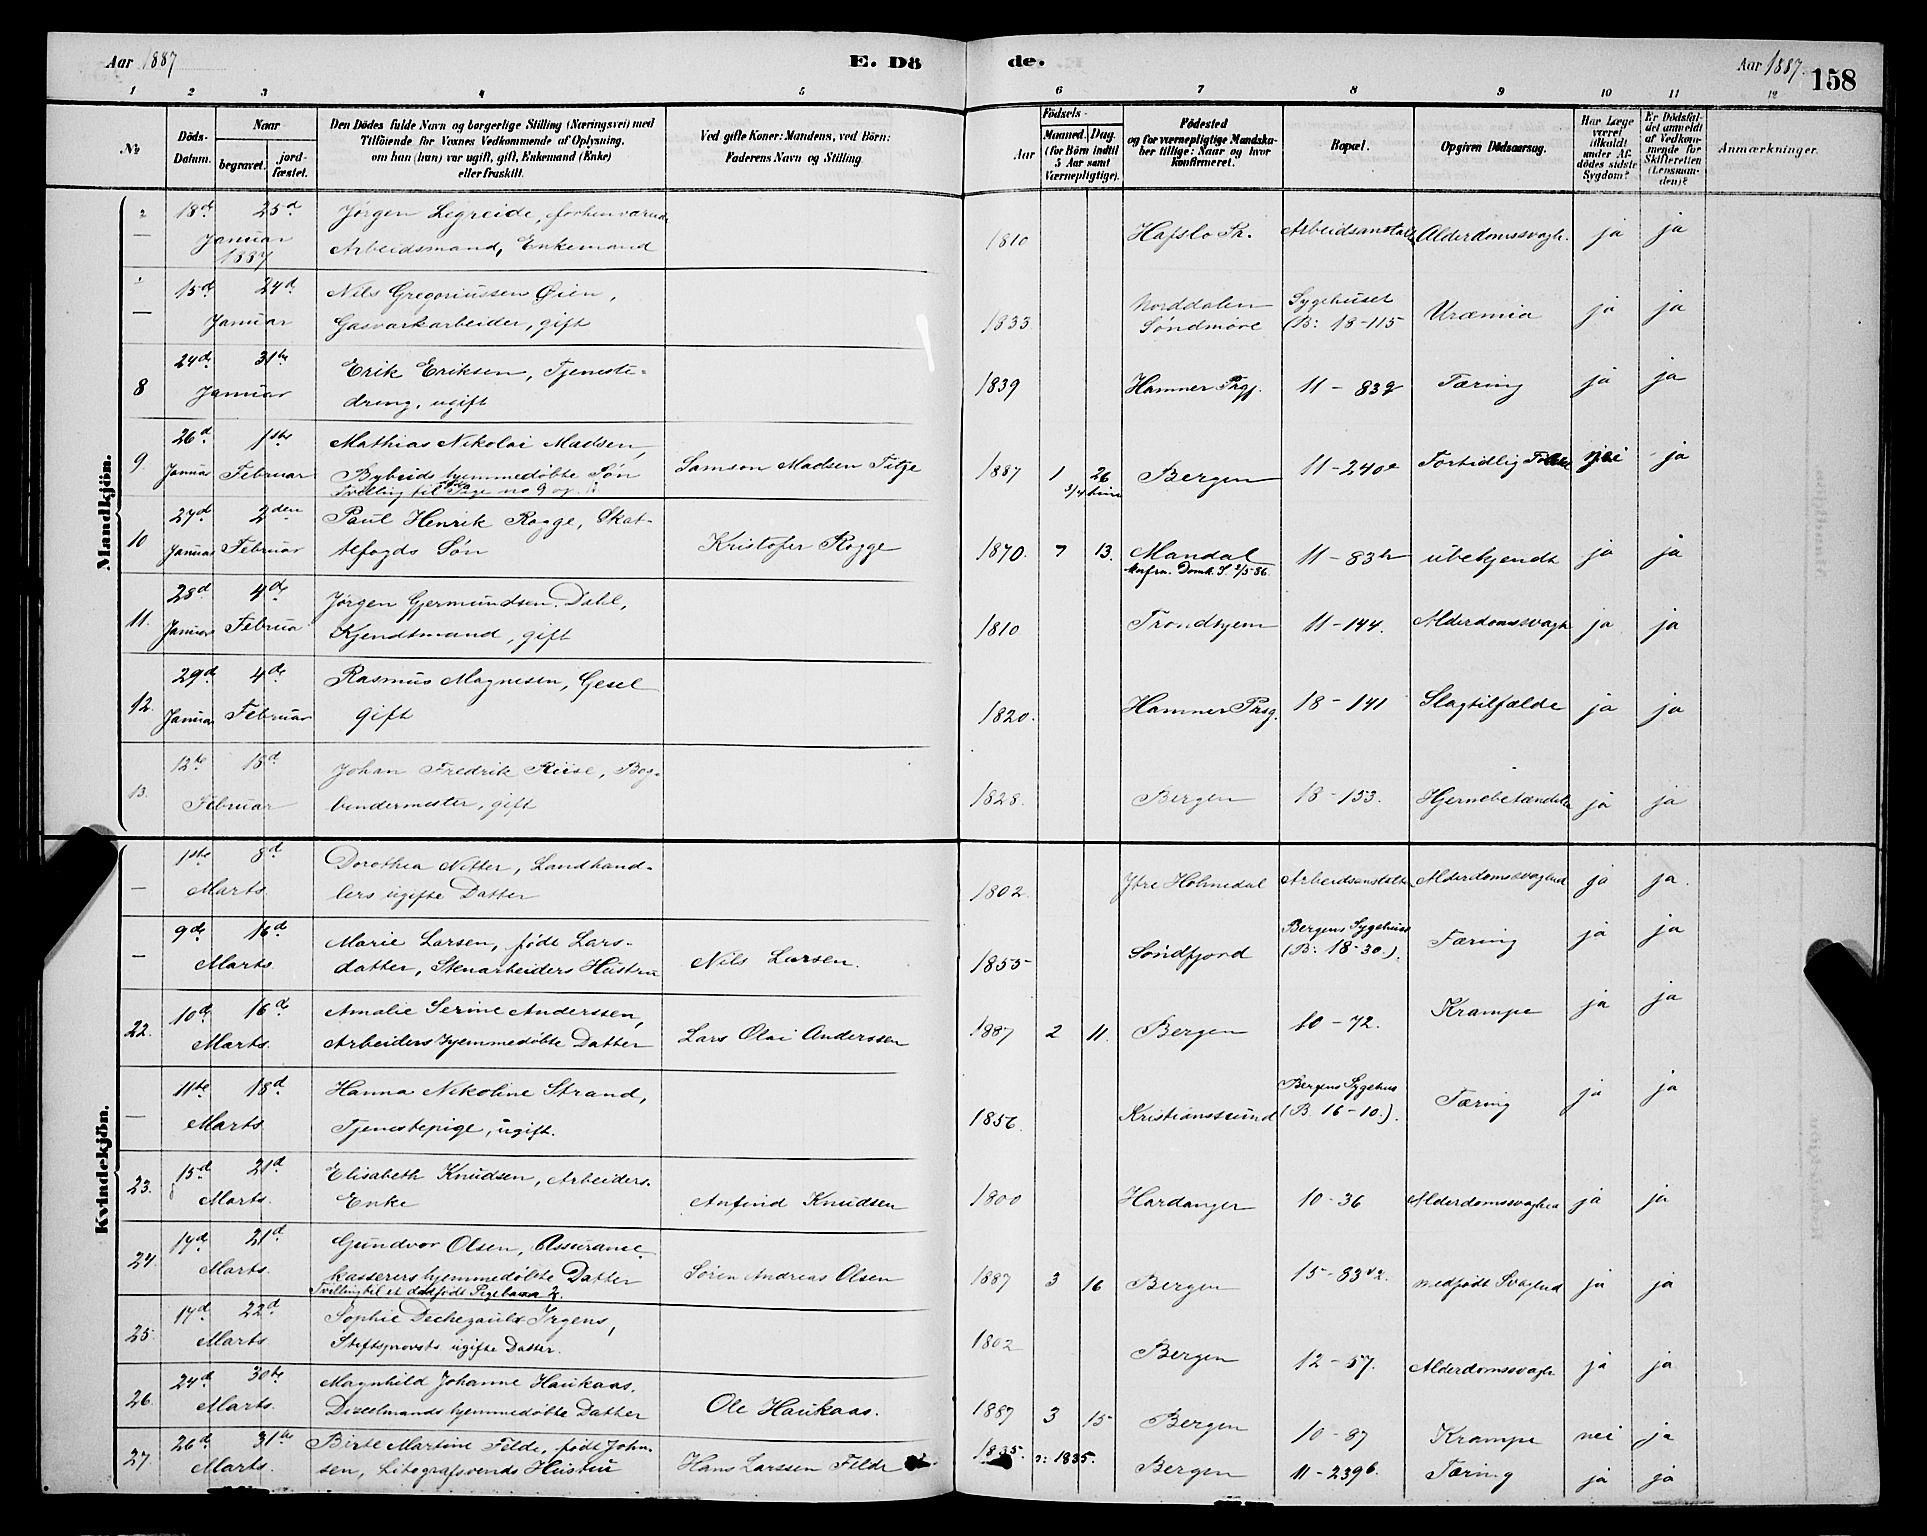 Aar 1887
E. Dö
de.
Aar 1887.
158
1 2 3 4 5 6 7 8 9 10 11 12
№
Döds-Datum.
Naar
begravet. jordfæstet.
Den Dödes fulde Navn og borgerlige Stilling (Næringsvei) med
Tilföiende for Voxnes Vedkommende af Oplysning,
om han (hun) var ugift, gift, Enkemand (Enke)
eller fraskilt.
Ved gifte Koner: Mandens, ved Börn:
Faderens Navn og Stilling.
Födsels-
Aar
Maaned. Dag.
(for Börn indtil
5 Aar samt
Værnepligtige).
Födested
og for værnepligtige Mandska-
ber tillige: Naar og hvor
konfirmeret.
Bopæl.
Opgiven Dödsaarsag.
Har Læge
været
tilkaldt
under Af-
dödes sidste
Sygdom?
Er Dödsfal-
det anmeldt
af Vedkom-
mende for
Skifteretten
(Lensman-
den)?
Anmærkninger.
Mandkjön.
18de 25d Jørgen Legreide, forhenværende 1810 Hafslo Pr. Arbeidsanstalt Alderdomssvagh. ja ja
Januar 1887 Arbeidsmand, Enkemand
15d 24d Nils Gregoriussen Øien, 1833 Norddalen Sygehuset Uræmia ja ja
Januar Gasværkarbeider, gift Søndmøre (B: 18-115
8 24de 31te Erik Eriksen, Tjeneste- 1839 Hammer Prgj. 11-83g Tæring ja ja
Januar dreng, ugift
9. 26d 1ste Mathias Nikolai Madsen, Samson Madsen Titje 1887 1 26 Bergen 11-240e Fortidlig nei ja
Januar Februar Bybuds hjemmedøbte Søn
Tvilling til Pige no 9 og
10 27d 2den Paul Henrik Rogge, Skat- Kristofer Rogge 1870. 7 13. Mandal 11-83h ubekjendt ja ja
Januar Februar tefogds Søn Konfrm. Domk. S. 2/5-86.
11. 28d 4de Jørgen Gjermundsen Dahl, 1810 Trondhjem 11-144. Alderdomssvagh ja ja
Januar Februa Kjendtmand, gift
12. 29d 4de Rasmus Magnesen, Gesel 1820. Hammer Prsg. 18-141 Slagtilfælde ja ja
Januar Februar gift
13. 12te 18d Johan Fredrik Riise, Bog- 1828. Bergen 18-153. Hjernebetændelse ja ja
Februar bindermester, gift
Kvindekjön.
1ste 8d Dorothea Nitter, Landhand- 1802. Ytre Holmedal Arbeidsanstalten Alderdomssvaghed ja ja.
Marts. lers ugifte Datter
9de 16d Marie Larsen, føde Lars- Nils Larsen. 1855 Søndfjord Bergens Sygehus Tæring ja ja
Marts. datter, Stenarbeiders Hustru (B: 18-30.).
22. 10d 16de Amalie Serine Anderssen, Lars Olai Anderssen 1887 2 11. Bergen 10-72. Krampe ja ja
Marts. Arbeiders hjemmedøbte Datter
11te 18d Hanna Nikoline Strand, 1856. Kristianssund Bergens Sygehus Tæring ja ja
Marts Tjenestepige, ugift. (B. 16-10.).
23. 15d 21d Elisabeth Knudsen, Arbeiders- Anfind Knudsen 1800 Hardanger 10-36 Alderdomssvaghed ja ja
Marts. Enke
24. 17d 21d Gundvor Olsen, Assurance- Søren Andreas Olsen 1887 3 16 Bergen 15-83 medfødt Svaghed ja ja
Marts. kasserers hjemmedøbte Datter
Tvilling til et dødfødt Pigebarn
25. 17d 22d Sophie Dechezaulx Irgens, 1802 Bergen 12-57. Alderdomssvaghe ja ja
Marts. Stiftsprovsts ugifte Datter.
26. 24d 30te Magnhild Johanne Haukaas, Ole Haukaas. 1887 3 15 Bergen 10-87 Krampe nei ja
Marts. hjemmedøbte Datter
27. 26d 31te Birte Martine Felde, født John- Hans Larssen Felde 1835 ɔ: 1835. Bergen 11-239b. Tæring ja ja
Marts. sen, Litografsvends Hustru